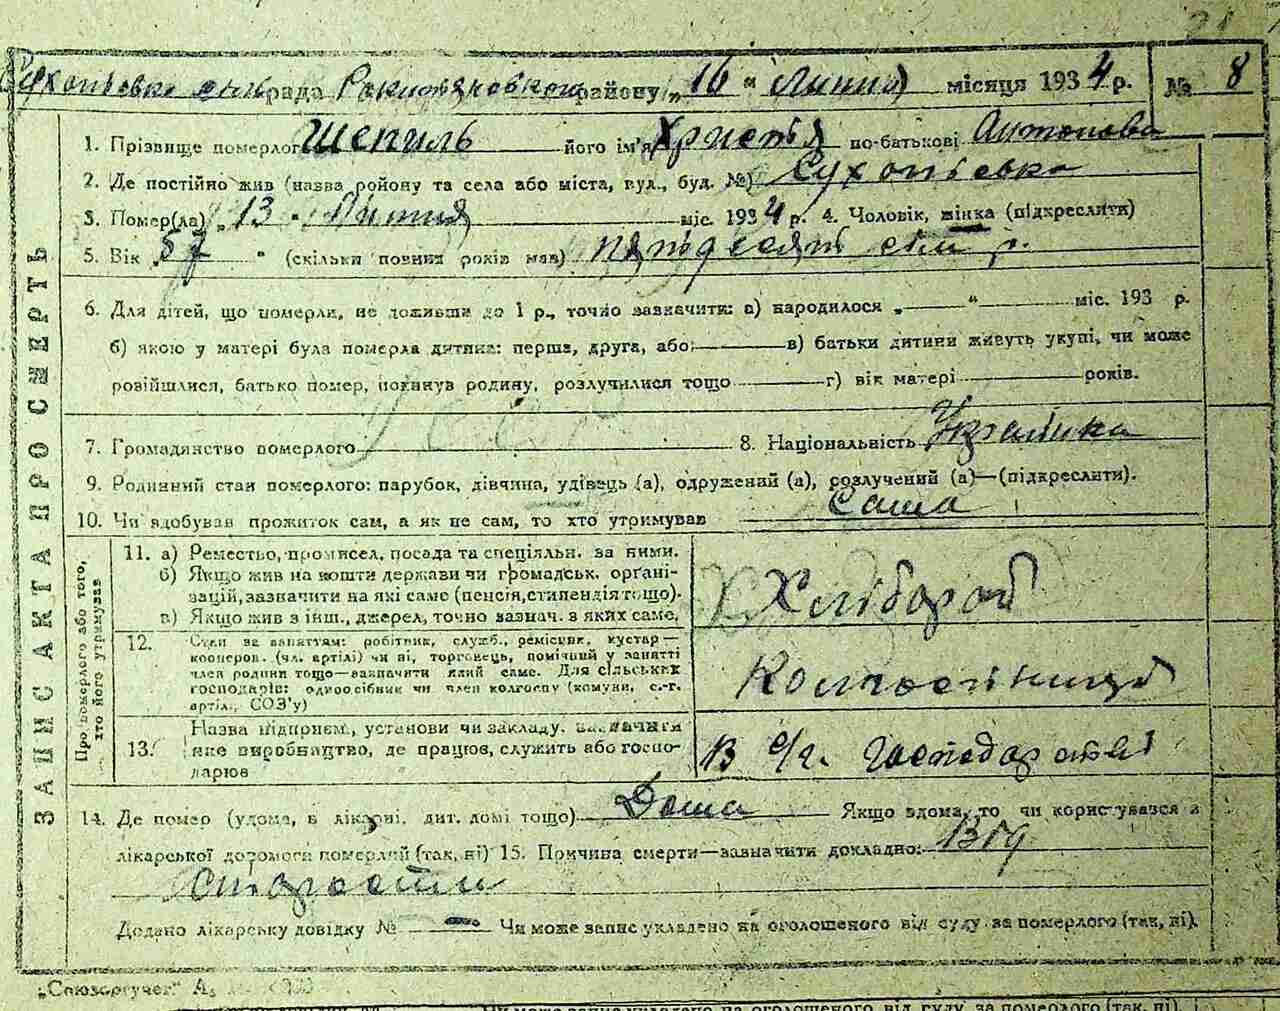 21
Сухоліська сільрада Рокитянського району „16" Липня місяця 1934 р. № 8
1. Прізвище померлого Шепиль його ім'я Христя по-батькові Антонова
2. Де постійно жив (назва району та села або міста, вул., буд. №) Сухоліська
3. Помер(ла) „13" Липня міс. 1934 р. 4. Чоловік, жінка (підкреслити)
5. Вік 57 " (скільки повних років мав) пятьдесят сім р.
6. Для дітей, що померли, не доживши до 1 р., точно зазначити: а) народилося „—" — міс. 193 р.
б) якою у матері була померла дитина: перша, друга, або: — в) батьки дитини живуть укупі, чи може
розійшлися, батько помер, покинув родину, розлучилися тощо — г) вік матері — років.
7. Громадянство померлого УССР 8. Національність Українка
9. Родинний стан померлого: парубок, дівчина, удівець (а), одружений (а), розлучений (а)—(підкреслити).
10. Чи здобував прожиток сам, а як не сам, то хто утримував Сама
ЗАПИС АКТА ПРО СМЕРТЬ
Про померлого або того, хто його утримував
11. а) Ремество, промисел, посада та спеціяльн. за ними.
б) Якщо жив на кошти держави чи громадськ. органі-
зацій, зазначити на які саме (пенсія, стипендія тощо).
в) Якщо жив з інш., джерел, точно зазнач. з яких саме.
Хлібороб
12. Стан за заняттям: робітник, служб., ремісник, кустар—
кооперов. (чл. артілі) чи ні, торговець, помічний у занятті
член родини тощо—зазначити який саме. Для сільських
господарів: одноосібник чи член колгоспу (комуни, с.-г.
артіл., СОЗ'у)
Колгоспниця
13. Назва підприєм., установи чи закладу, зазначити
яке виробництво, де працює, служить або госпо-
дарює
В с/г. Господарстві
14. Де помер (удома, в лікарні, дит. домі тощо) Дома Якщо вдома, то чи користувався з
лікарської допомоги померлий (так, ні) 15. Причина смерти—зазначити докладно: Від
старости
Додано лікарську довідку № — Чи може запис укладено на оголошеного від суду за померлого (так, ні).
„Союзоргучет" А₅
Чи може запис укладено на оголошеного від суду за померлого (так, ні).